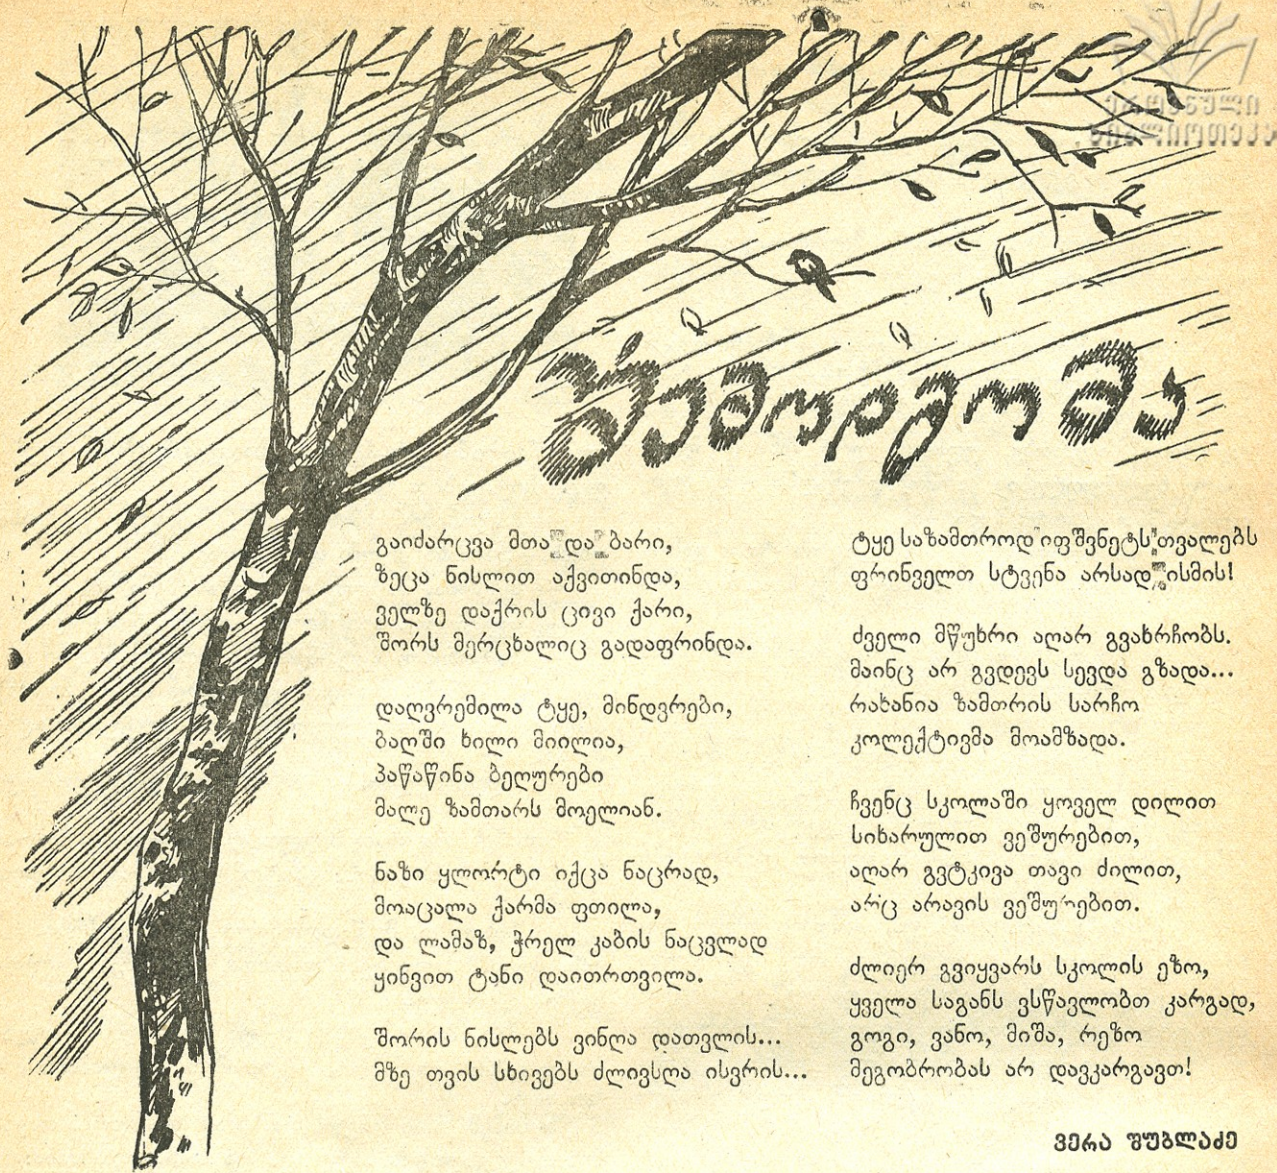 ეროვნული
ბიბლიოთეკა
შემოდგომა
გაიძარცვა მთა და ბარი,
ზეცა ნისლით აქვითინდა,
ველზე დაქრის ცივი ქარი,
შორს მერცხალიც გადაფრინდა.
დაღვრემილა ტყე, მინდვრები,
ბაღში ხილი მიილია,
პაწაწინა ბეღურები
მალე ზამთარს მოელიან.
ნაზი ყლორტი იქცა ნაცრად,
მოაცალა ქარმა ფთილა,
და ლამაზ, ჭრელ კაბის ნაცვლად
ყინვით ტანი დაითრთვილა.
შორის ნისლებს ვინღა დათვლის...
მზე თვის სხივებს ძლივსღა ისვრის...
ტყე საზამთროდ იფშვნეტს თვალებს
ფრინველთ სტვენა არსად ისმის!
ძველი მწუხრი აღარ გვახრჩობს.
მაინც არ გვდევს სევდა გზადა...
რახანია ზამთრის სარჩო
კოლექტივმა მოამზადა.
ჩვენც სკოლაში ყოველ დილით
სიხარულით ვეშურებით,
აღარ გვტკივა თავი ძილით,
არც არავის ვეშურებით.
ძლიერ გვიყვარს სკოლის ეზო,
ყველა საგანს ვსწავლობთ კარგად,
გოგი, ვანო, მიშა, რეზო
მეგობრობას არ დავკარგავთ!
ვერა შუბლაძე